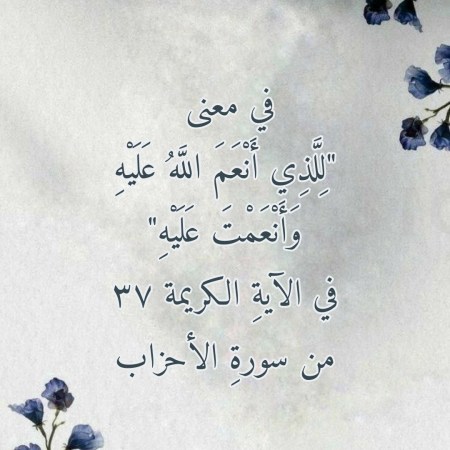 في معنى
"لِلَّذِي أَنْعَمَ اللَّهُ عَلَيْهِ
وَأَنْعَمْتَ عَلَيْهِ"
في الآيةِ الكريمة ٣٧
من سورةِ الأحزاب